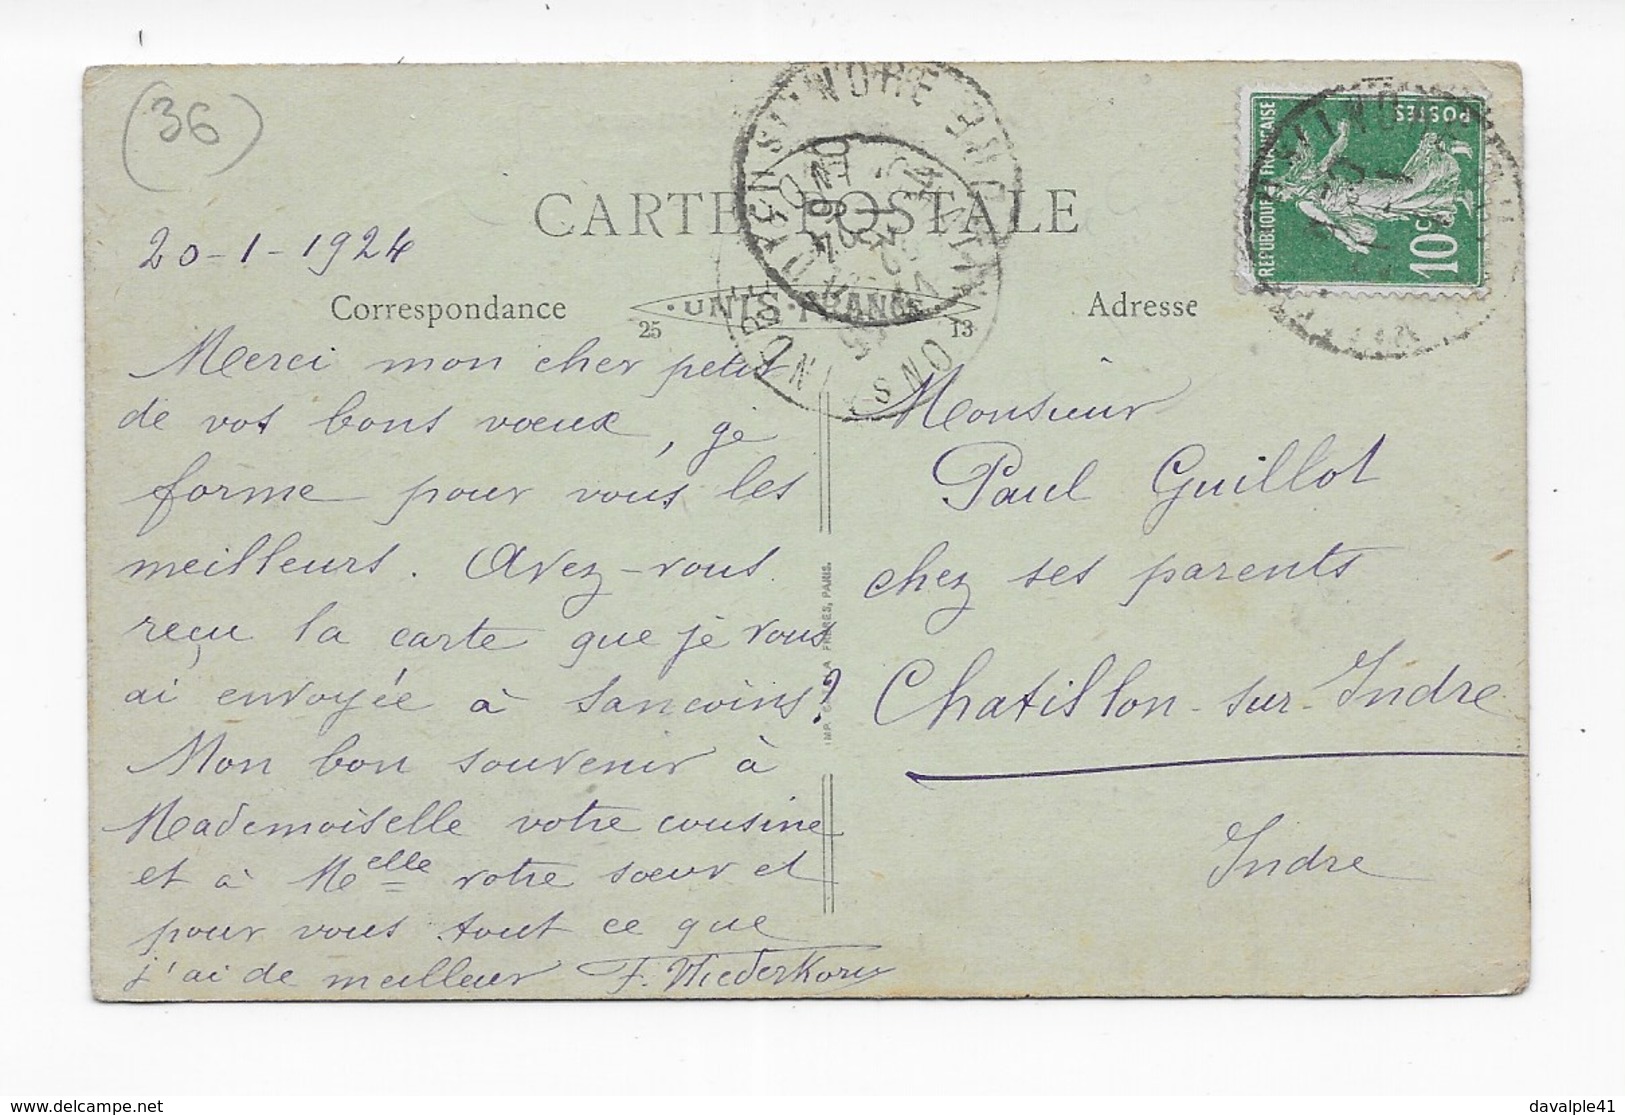 (36)
CARTE POSTALE
20-1-1924
Correspondance
UNIS-FRANCE
25
13
Adresse
RÉPUBLIQUE FRANÇAISE
POSTES
10c
Merci mon cher petit
de vos bons vœux, je
forme pour vous les
meilleurs. Avez-vous
reçu la carte que je vous
ai envoyée à Sancoins?
Mon bon souvenir à
Mademoiselle votre cousine
et à Melle votre sœur et
pour vous tout ce que
j'ai de meilleur F. Niederkorn
FRÈRES, PARIS.
IMP.
Monsieur
Paul Guillot
chez ses parents
Chatillon-sur-Indre
Indre
www.delcampe.net
davalple41